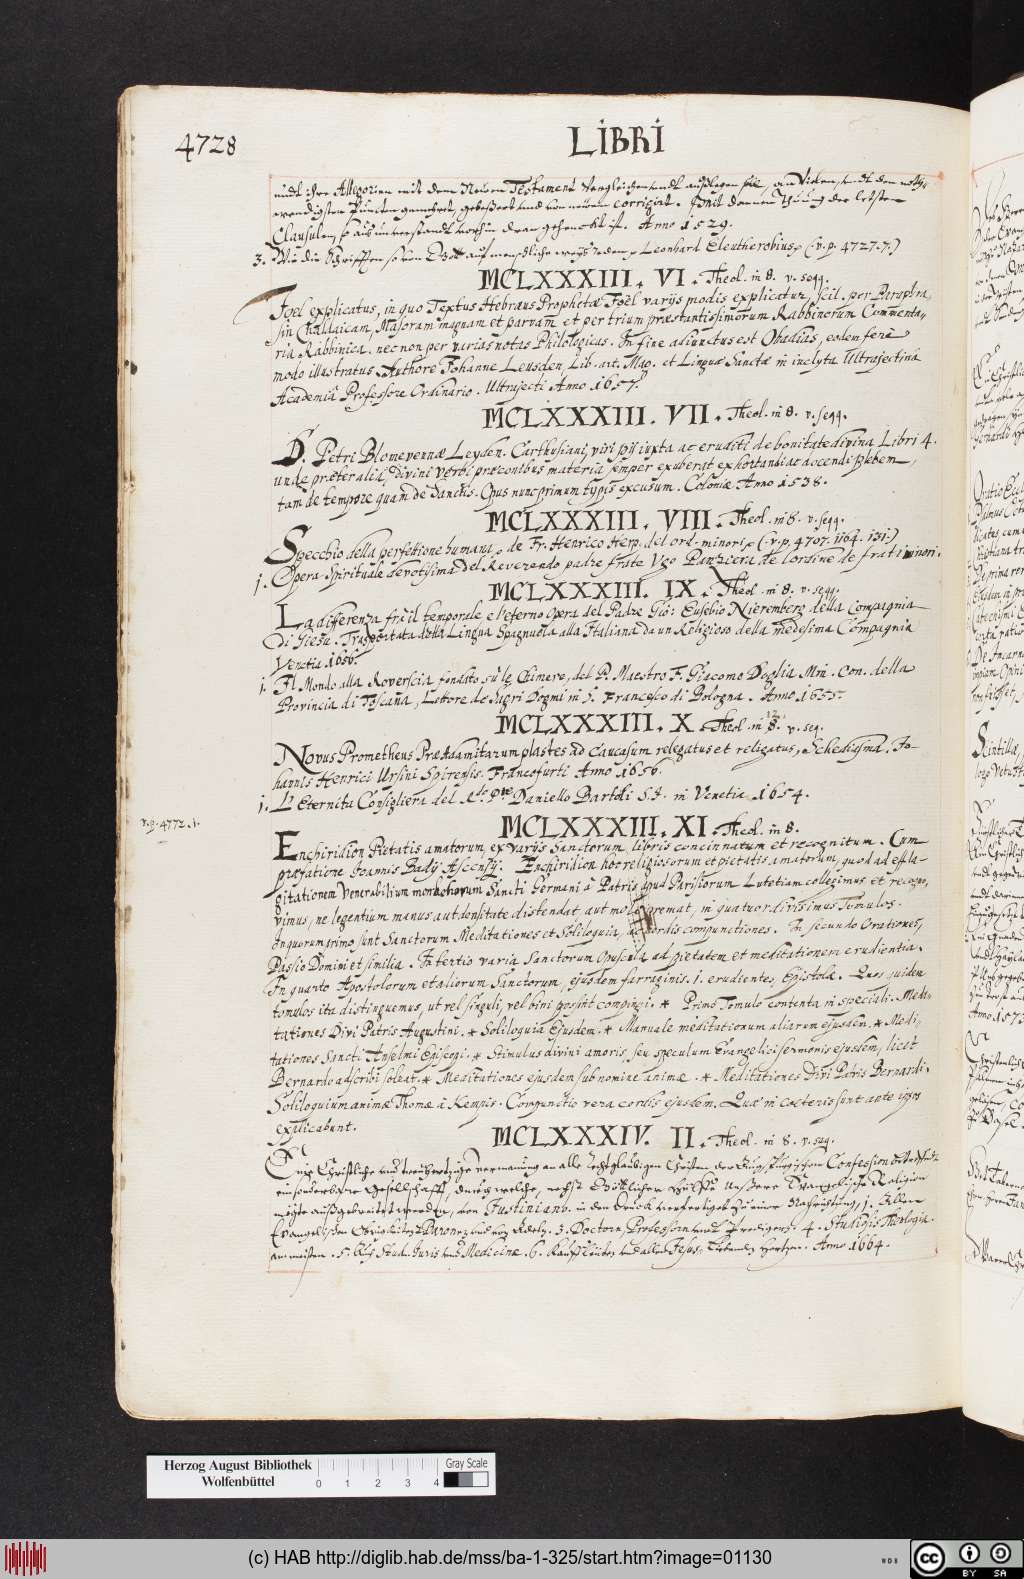 4728
LIBRI
undt ihre Allegorien mit dem Neuen Testament Vergleichen undt außlegen sol, an Vielen undt den noth-
wendigsten Puncten gemehret, gebeßert und von neuem corrigirt.
Clausulen, so auß unverstandt vorhin daran gehenckt ist. Anno 1529.
3. Wie die Schrifften so von Gott auf menschliche weyß reden, Leonhard Eleutherobius, (v. p. 4727.7.)
MCLXXXIII. VI. Theol. in 8. v. seqq.
Joel explicatus, in quo Textus Hebræus Prophetæ Joel varijs modis explicatur, scil. per Paraphra-
sin Chaldaicam, Masoram magnam et parvam et per trium præstantissimorum Rabbinorum Commenta-
ria Rabbinica. nec non per varias notas Philologicas. In fine adiunctus est Obadias, eodem ferè
modo illustratus. Authore Johanne Leusden Lib. art. Mag. et Linguæ Sanctæ in inclyta Ultrajectina
Academia Professore Ordinario. Ultrajecti Anno 1657.
MCLXXXIII. VII. Theol. in 8. v. seqq.
D. Petri Blomevennæ Leyden. Carthusiani, viri pij iuxta ac eruditi de bonitate divina Libri 4.
unde præter alia, Divini verbi præconibus materia semper exuberat exhortandi ac docendi plebem,
tam de tempore quam de Sanctis. Opus nunc primum typis excusum. Coloniæ Anno 1538.
MCLXXXIII. VIII. Theol. in 8. v. seqq.
Specchio della perfettione humana, de Fr. Henrico Herp. del ord. minori, (v. p. 4707. 1164. 131.)
1. Opera Spirituale devotissima del Reverendo padre frate Vgo Panziera de l'ordine de frati minori.
MCLXXXIII. IX. Theol. in 8. v. seqq.
La differenza frà il temporale e l'eterno Opera del Padre Gio: Eusebio Nieremberg della Compagnia
di Giesu. Trasportata dalla Lingua Spagnuola alla Italiana da un Religioso della medesima Compagnia
Venetia 1656.
1. Il Mondo alla Roverscia fondato sù le Chimere, del P. Maestro F. Giacomo Doglia Min. Con. della
Provincia di Toscana, Lettore de Sagri Dogmi in S. Francesco di Bologna. Anno 1655.
MCLXXXIII. X. Theol. in 12 8. v. seq.
Novus Prometheus Præadamitarum plastes ad Caucasum relegatus et religatus, Schediasma. Jo-
hannis Henrici Ursini Spirensis. Francofurti Anno 1656.
1. L'Eternita Consigliera del R.do P.re Daniello Bartoli S.J. in Venetia 1654.
v. p. 4772.1.
MCLXXXIII. XI. Theol. in 8.
Enchiridion Pietatis amatorum, ex varijs Sanctorum libris concinnatum et recognitum. Cum
præfatione Joannis Badij Ascensij. Enchiridion hoc religiosorum et pietatis amatorum, quod ad efflа-
gitationem Venerabilium monachorum Sancti Germani à Pratis apud Parisiorum Lutetiam collegimus et recogno-
vimus, ne legentium manus aut densitate distendat, aut mole premat, in quatuor divisimus Tomulos.
In quorum primo sunt Sanctorum Meditationes et Soliloquia, ac cordis compunctiones. In secundo Orationes,
Passio Domini et similia. In tertio varia Sanctorum Opuscula ad pietatem et meditationem erudientia.
In quarto Apostolorum et aliorum Sanctorum, ejusdem farraginis. i. erudientes, Epistolæ. Quos quidem
tomulos ita distinguemus, ut vel singuli, vel bini possint compingi. * Primo Tomulo contenta in speciali. Medi-
tationes Divi Patris Augustini. * Soliloquia Ejusdem. * Manuale meditationum aliarum ejusdem. * Medi-
tationes Sancti Anselmi Episcopi. * Stimulus divini amoris, seu speculum Evangelici sermonis ejusdem, licet
Bernardo adscribi soleat. * Meditationes ejusdem sub nomine animæ. * Meditationes Divi Patris Bernardi.
Soliloquium animæ Thomæ à Kempis. Compunctio vera cordis ejusdem. Quæ in cæteris sunt ante ipsos
explicabunt.
MCLXXXIV. II. Theol. in 8. v. seq.
Eine Christliche und treuhertzige Vermanung an alle rechtglaubigen Christen der Augspurgischen Confession
ein sonderbare Gesellschafft, durch welche, nechst Göttlicher Hülff unsere Evangelische Religion
möge außgebreitet werden, von Justiniano. in den Druck verfertiget zu einer Nachrichtung, 1. Allen
Evangelischen Obrigkeiten 2. Baronen und von Adel, 3. Doctorn, Professorn undt Predigern. 4. Studiosis Theologiæ
am meisten. 5. Auch Stud. Juris und Medicinæ. 6. Kauffleuten und allen Jesus-liebenden Hertzen. Anno 1664.
Herzog August Bibliothek
Wolfenbüttel
0 1 2 3 4
Gray Scale
(c) HAB http://diglib.hab.de/mss/ba-1-325/start.htm?image=01130
WDB
cc
BY SA